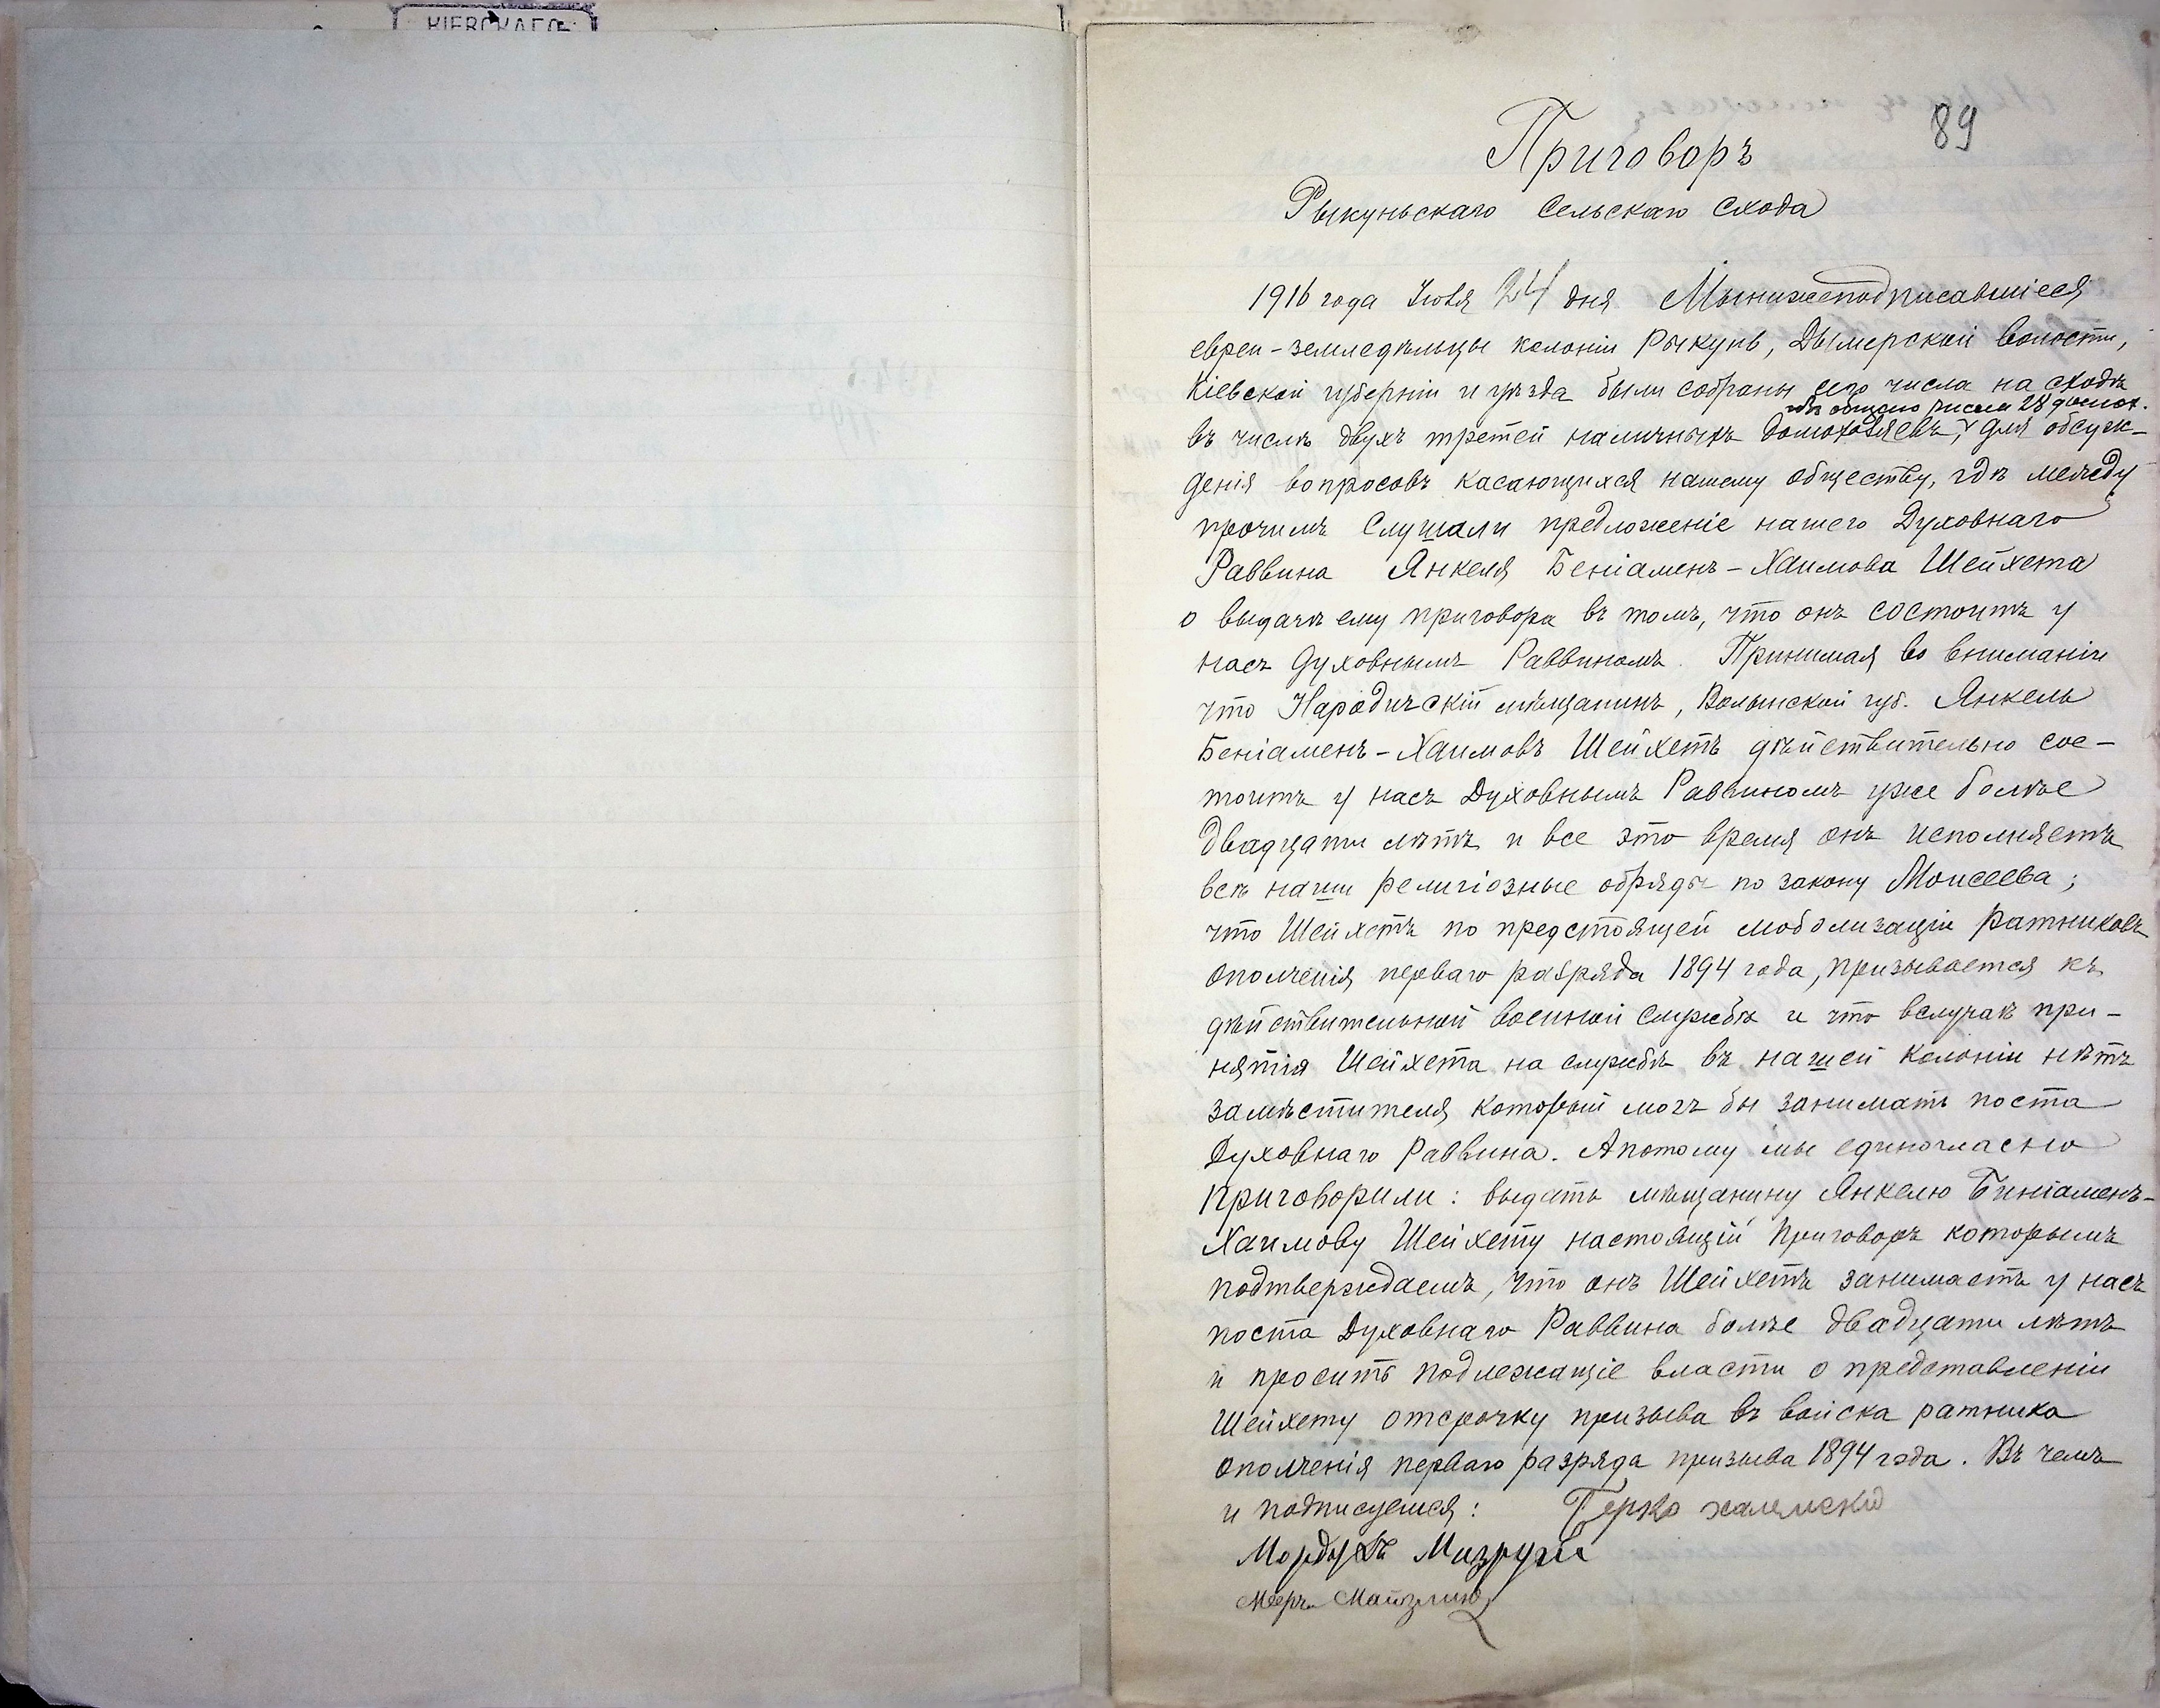 КІЕВСКАГО
89
Приговоръ
Рыкуньскаго Сельскаго Схода
1916 года Іюля 24 дня Мынижеподписавшіеся
евреи-земледѣльцы колоніи Рыкунь, Дымерской волости,
Кіевской губерніи и уѣзда были собраны сего числа на сходѣ
изъ общаго числа 28 домох.
въ числѣ двухъ третей наличныхъ домохозяевъ, для обсуж-
денія вопросовъ касающихся нашему обществу, гдѣ между
прочимъ Слушали предложеніе нашего Духовнаго
Раввина Янкеля Беніаменъ-Хаимова Шейхета
о выдачѣ ему приговора въ томъ, что онъ состоитъ у
насъ Духовнымъ Раввиномъ. Принимая во вниманіи
что Народичскій мѣщанинъ, Волынской губ. Янкель
Беніаменъ-Хаимовъ Шейхетъ дѣйствительно сос-
тоитъ у насъ Духовнымъ Раввиномъ уже болѣе
двадцати лѣтъ и все это время онъ исполняетъ
всѣ наши религіозные обряды по закону Моисеева;
что Шейхетъ по предстоящей моболизаціи ратниковъ
ополченія перваго разряда 1894 года, призывается къ
дѣйствительной военной службѣ и что вслучаѣ при-
нятія Шейхета на службѣ въ нашей колоніи нѣтъ
замѣстителя который могъ бы занимать поста
Духовнаго Раввина. Апотому мы единогласно
приговорили: выдать мѣщанину Янкелю Биніаменъ-
Хаимову Шейхету настоящій приговоръ которымъ
подтверждаемъ, что онъ Шейхетъ занимаетъ у насъ
поста Духовнаго Раввина болѣе двадцати лѣтъ
и просить подлежащіе власти о представленіи
Шейхету отсрочку призыва въ войска ратника
ополченія перваго разряда призыва 1894 года. Въ чемъ
и подписуемся: Герко
Мордухъ
Меръ